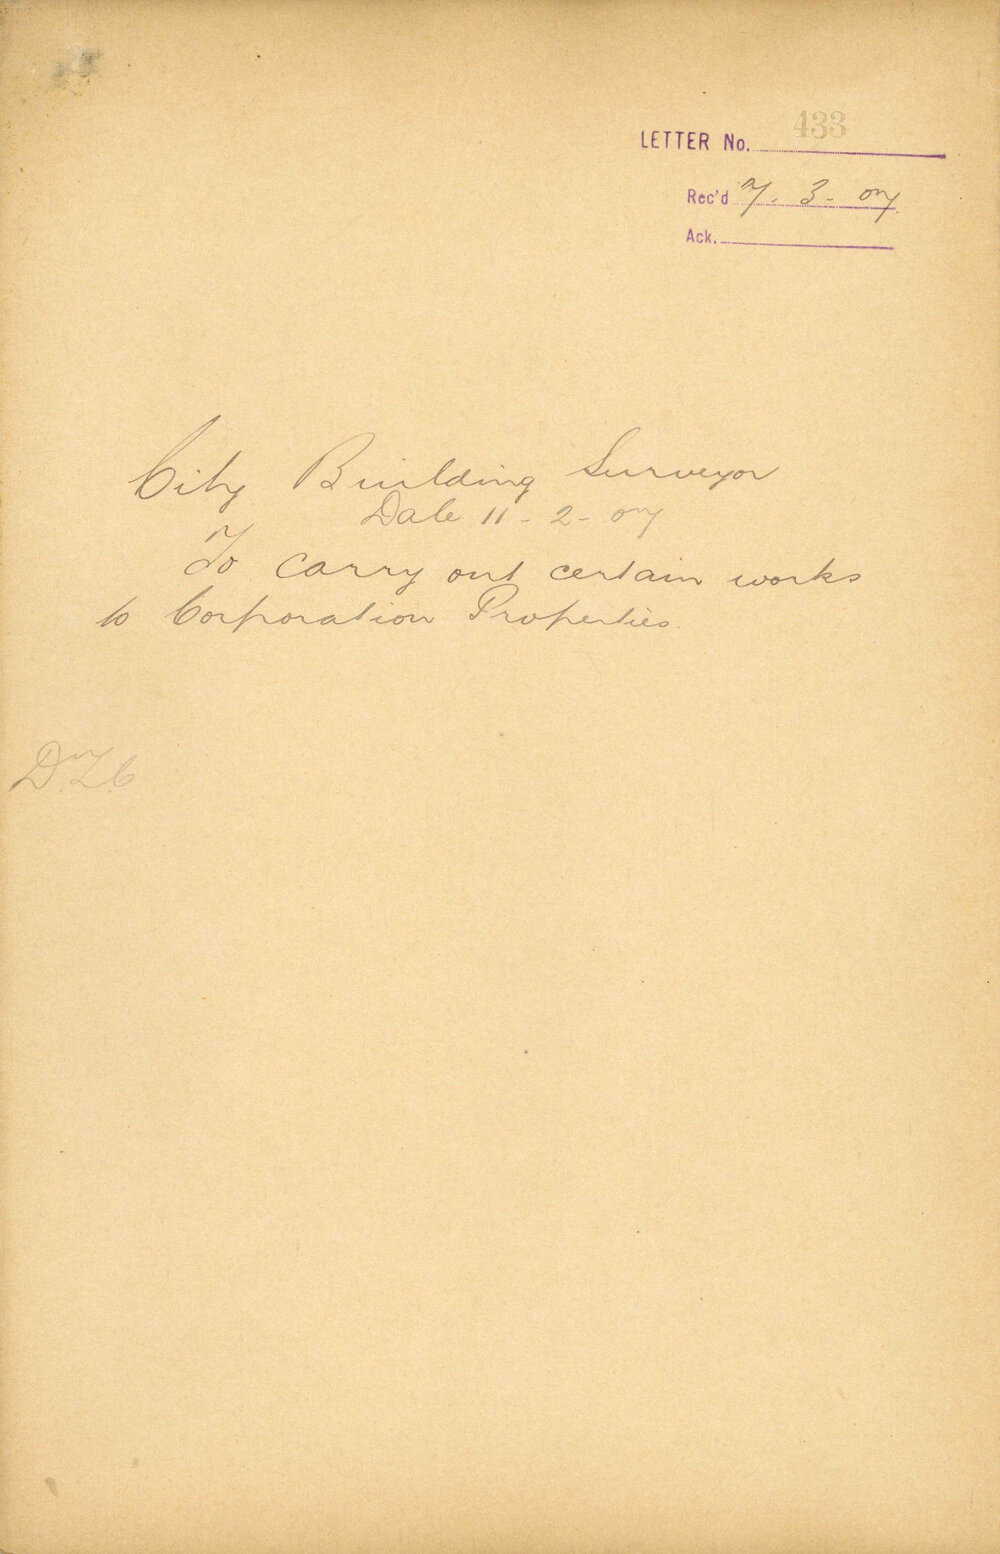 LETTER No. 433
Rec'd 7. 3 - 07
Ack.
City Building Surveyor
Date 11 - 2 - 07
To carry out certain works
to Corporation Properties.